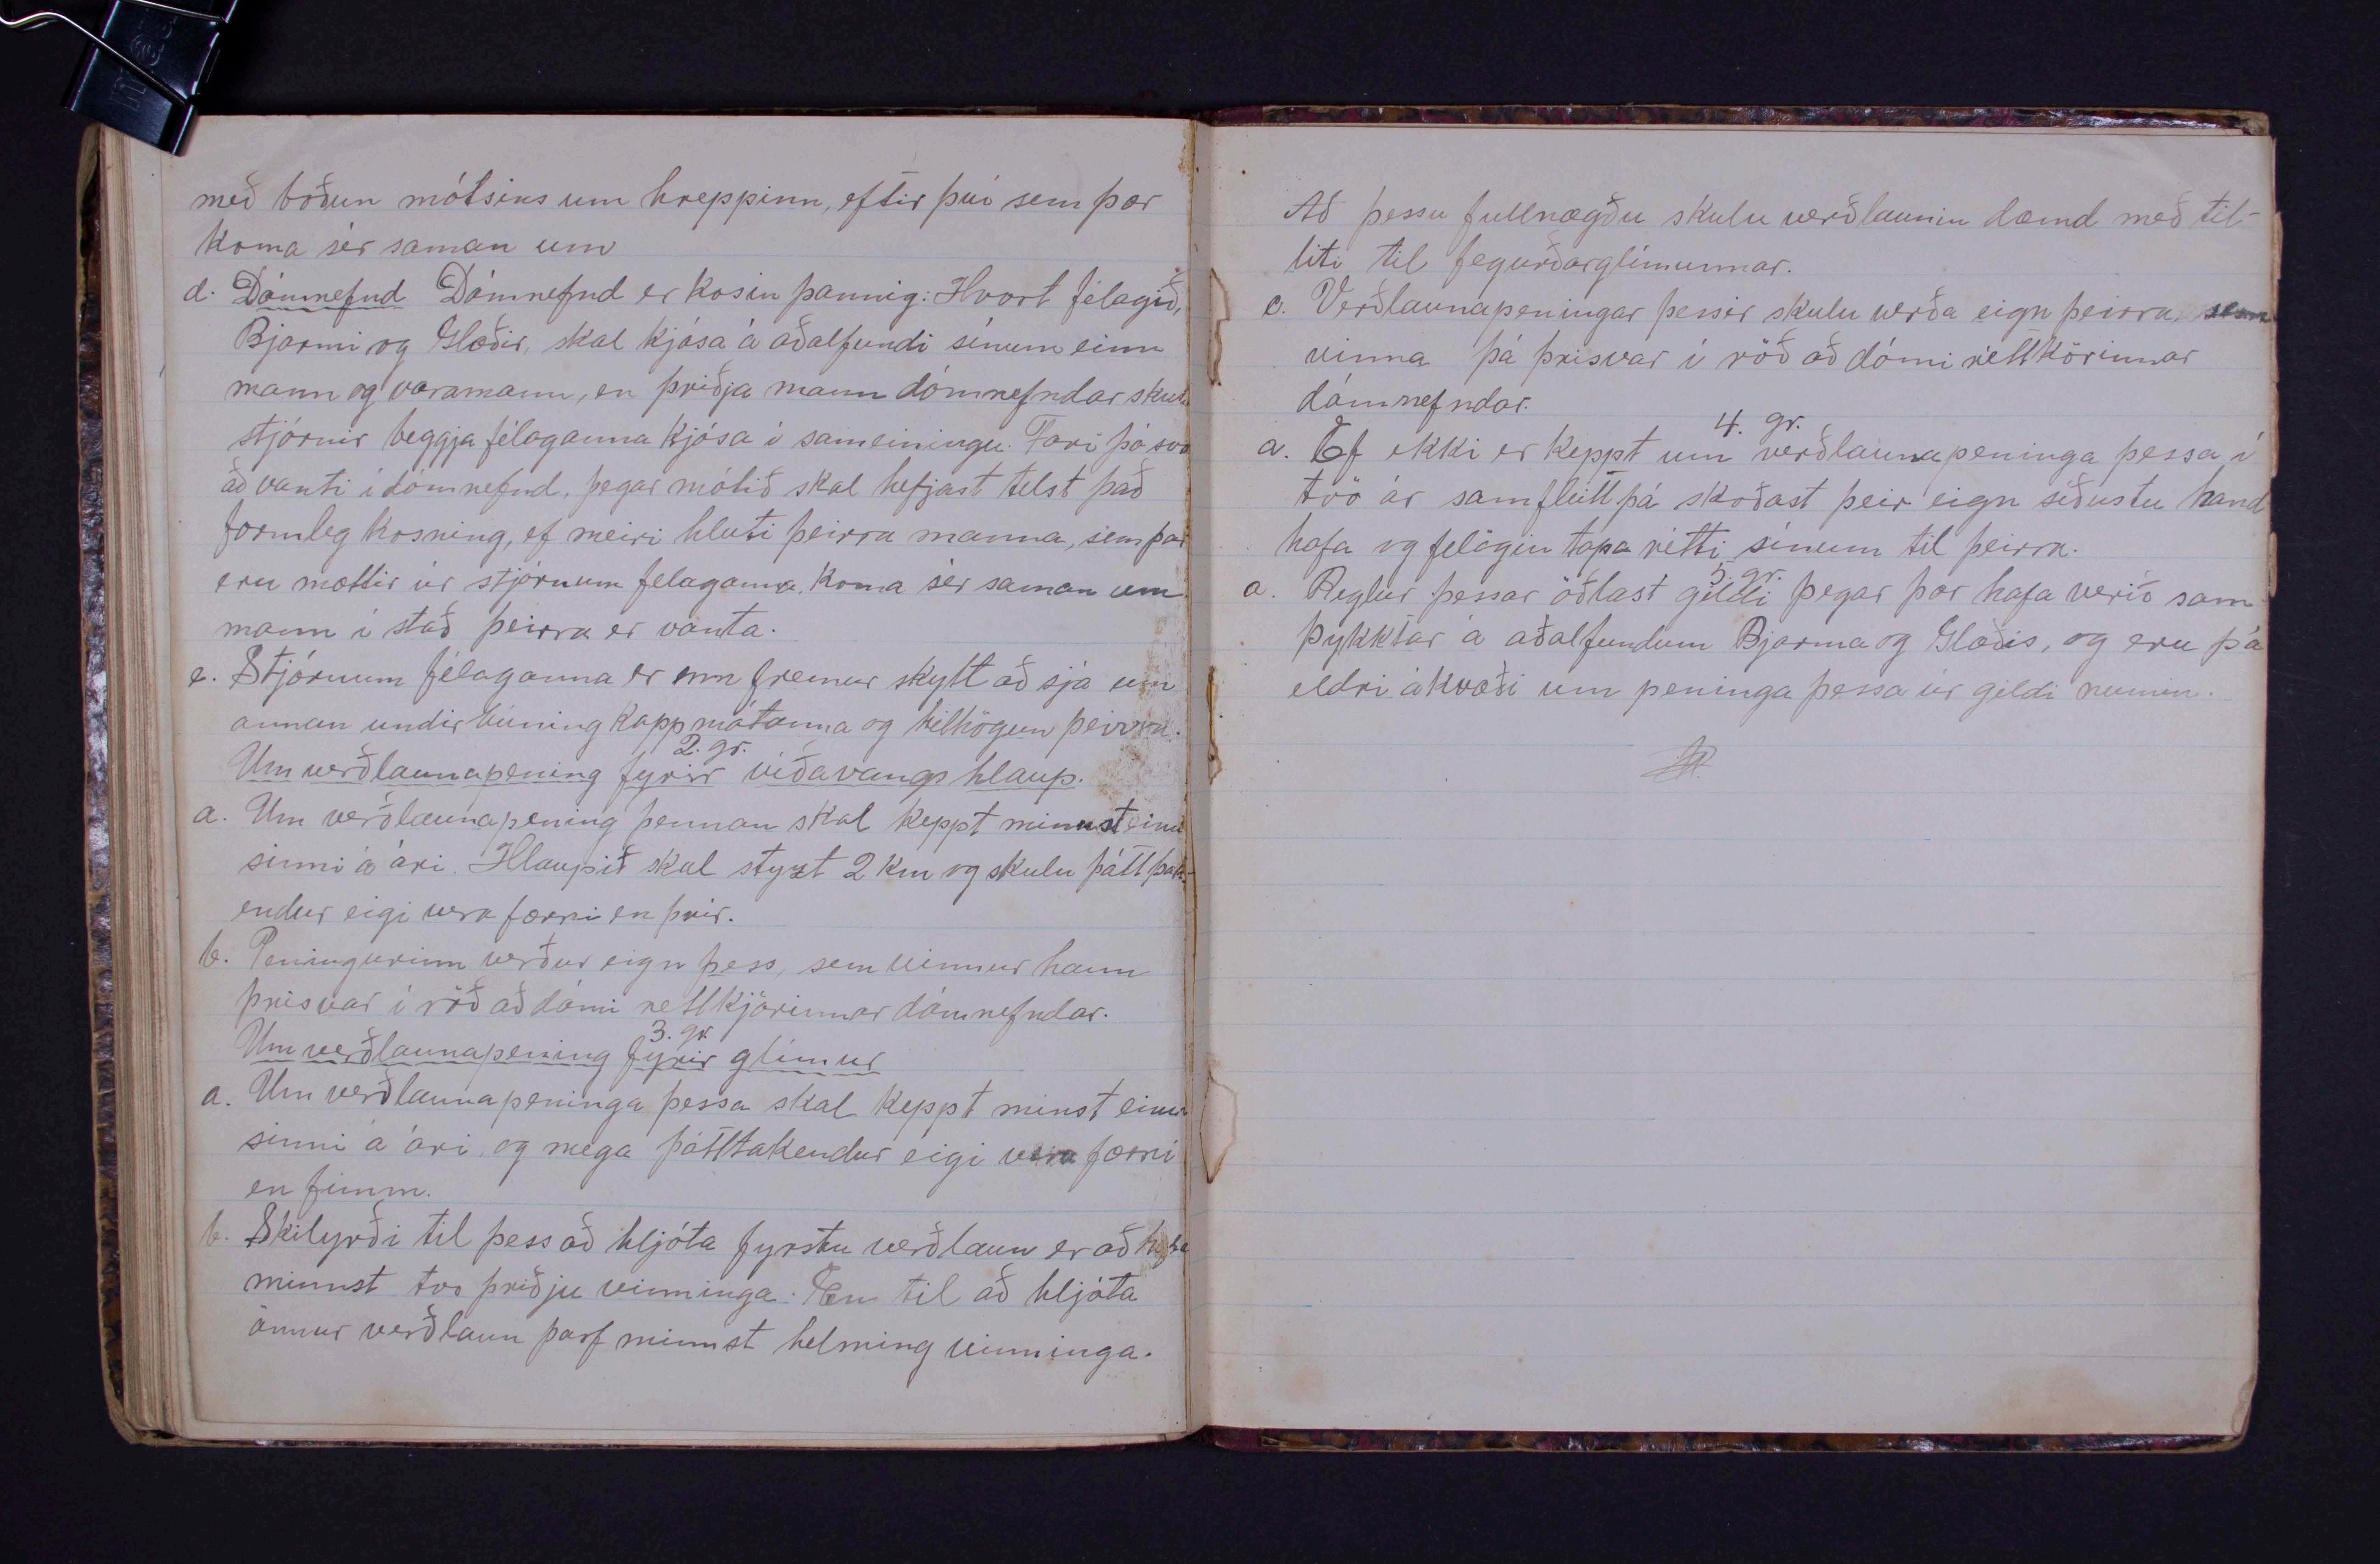 með boðun mótsins um hreppinn, eftir því sem þær
koma sér saman um
d. Dómnefnd Dómnefnd er kosin þannig: Hvort félagið,
Bjarmi og Glæðir, skal kjósa á aðalfundi sínum einn
mann og varamann, en þriðja mann dómnefndar skulu
stjórnir beggja félaganna kjósa í sameiningu. Fari þá svo
að vanti í dómnefnd, þegar mótið skal hefjast telst það
formleg kosning, ef meiri hluti þeirra manna, sem þar
eru mættir úr stjórnum félaganna, koma sér saman um
mann í stað þeirra er vanta.
e. Stjórnum félaganna er enn fremur skylt að sjá um
annan undirbúning kappmótanna og tilhögun þeirra.
2. gr.
Um verðlaunapening fyrir víðavangshlaup.
a. Um verðlaunapening þennan skal keppt minnst einu
sinni á ári. Hlaupið skal styzt 2 km og skulu þátttak-
endur eigi vera færri en þrír.
b. Peningurinn verður eign þess, sem vinnur hann
þrisvar í röð að dómi rettkjörinnar dómnefndar.
3. gr.
Um verðlaunapening fyrir glímur
a. Um verðlaunapeninga þessa skal keppt minst einu
sinni á ári, og mega þátttakendur eigi vera færri
en fimm.
b. Skilyrði til þess að hljóta fyrstu verðlaun er að hafa
minnst tvo þriðju vinninga. En til að hljóta
önnur verðlaun þarf minnst helming vinninga.
Að þessu fullnægðu skulu verðlaunin dæmd með til-
liti til fegurðarglímunnar.
c. Verðlaunapeningar þessir skulu verða eign þeirra, sem
vinna þá þrisvar í röð að dómi réttkörinnar
dómnefndar.
4. gr.
a. Ef ekki er keppt um verðlaunapeninga þessa í
tvö ár samfleitt þá skoðast þeir eign síðustu hand
hafa og felögin tapa rétti sínum til þeirra.
5. gr.
a. Reglur þessar öðlast gildi þegar þær hafa verið sam
þykktar á aðalfundum Bjarma og Glæðis, og eru þá
eldri ákvæði um peninga þessa úr gildi numin.